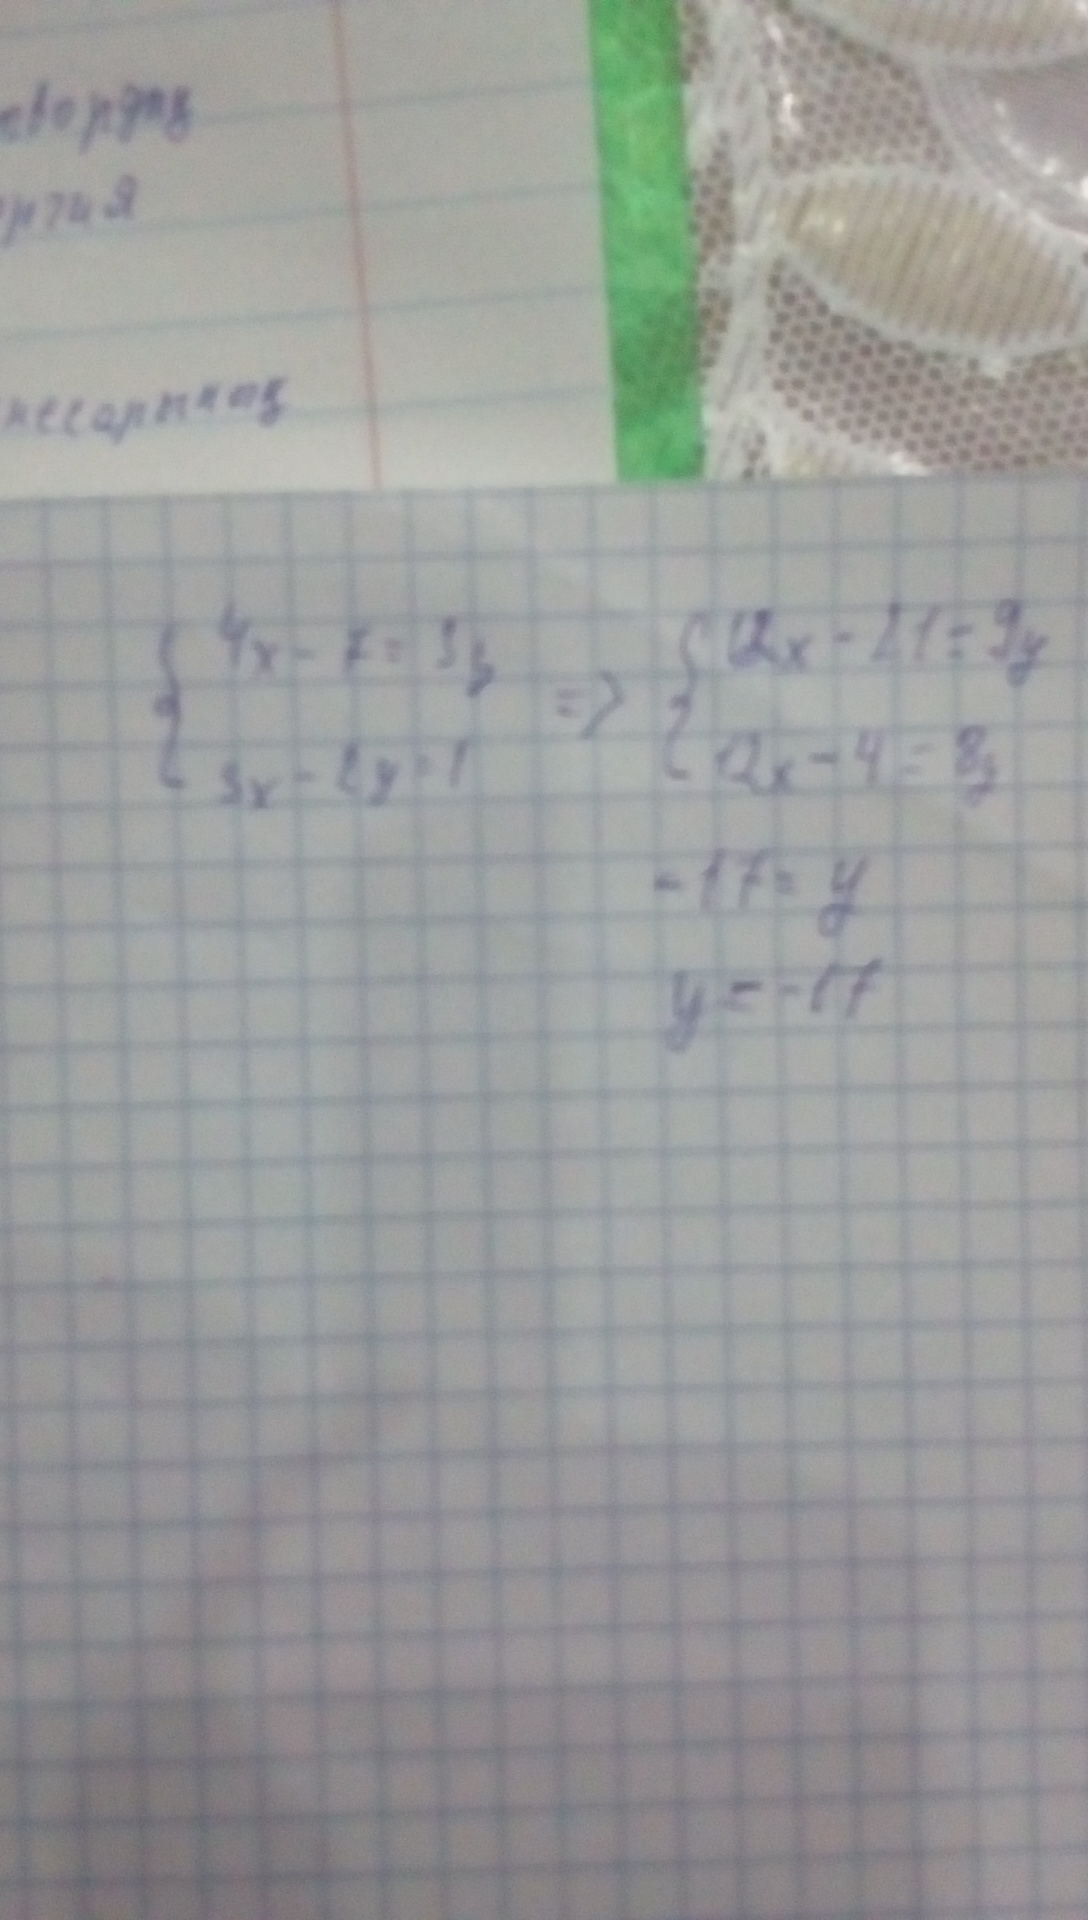 4x - 7 = 3y
3x - 2y = 1
=>
12x - 21 = 9y
12x - 4 = 8y
-17 = y
y = -17